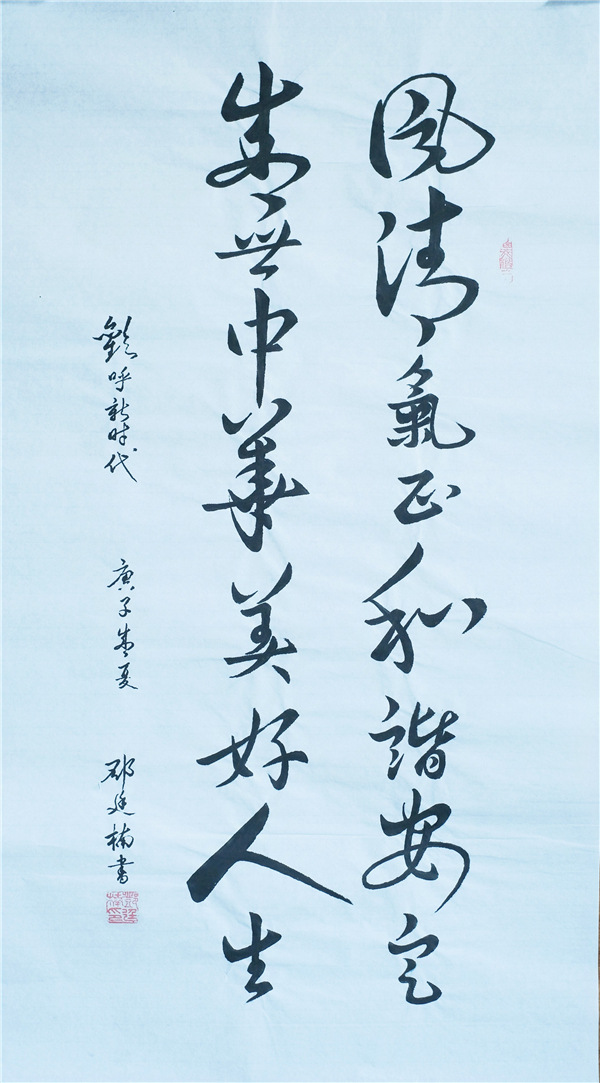 風清氣正和諧安定
盛世中華美好人生
歡呼新时代 庚子盛夏 廷楠書